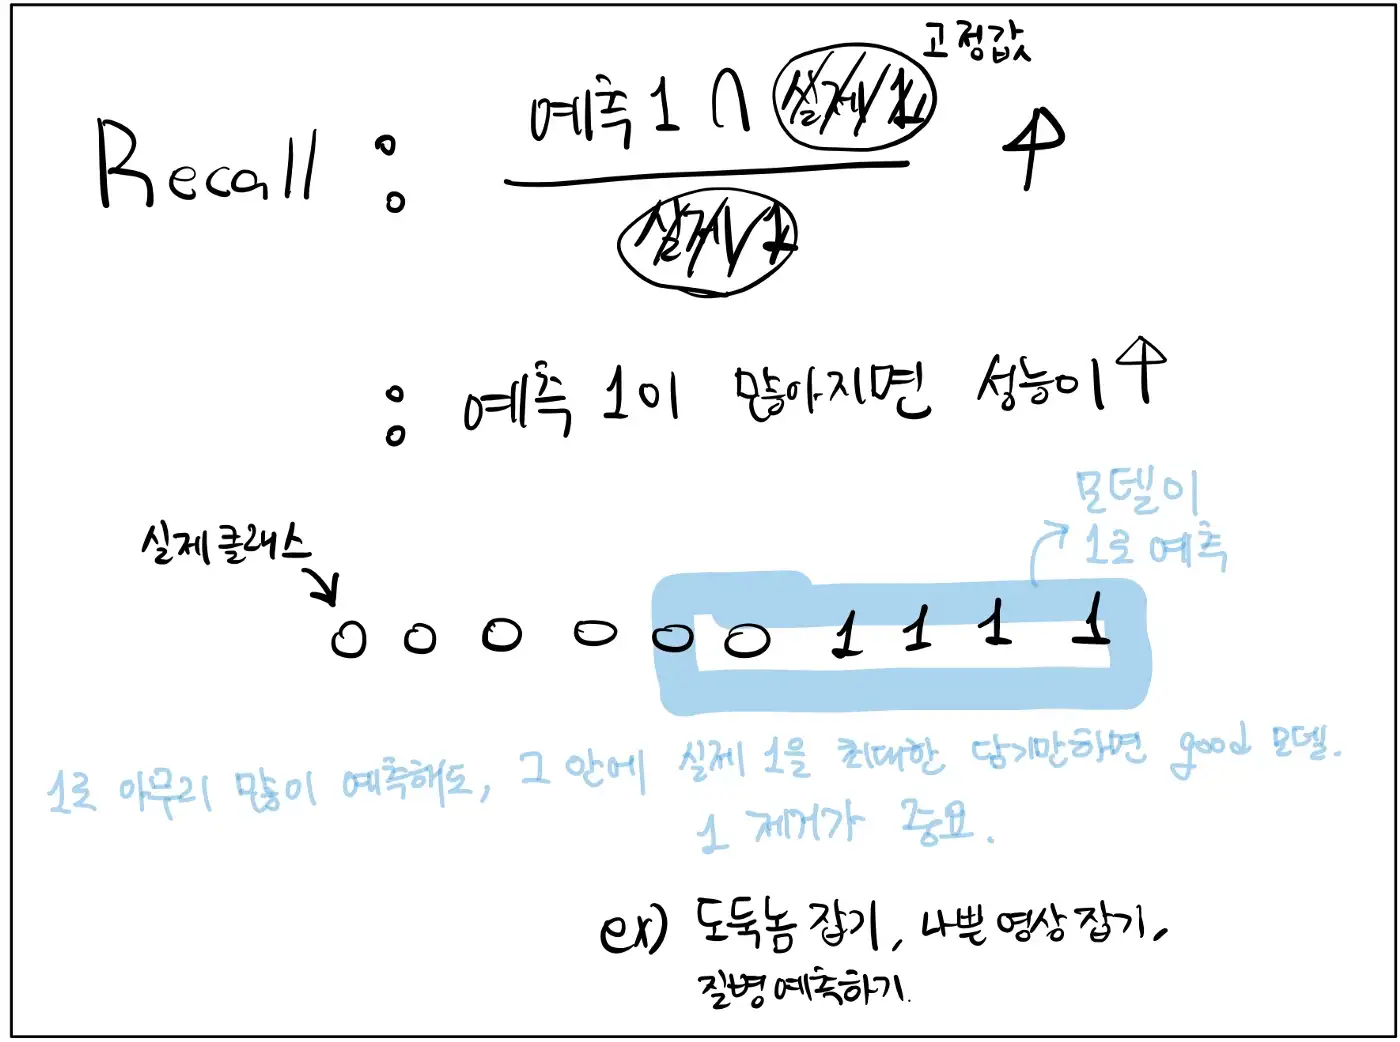 고정값
Recall : 예측 1 ∩ 실제 1
실제 1
: 예측 1이 많아지면 성능이 ↑
모델이
1로 예측
실제 클래스
0 0 0 0 0 0 1 1 1 1
1로 아무리 많이 예측해도, 그 안에 실제 1을 최대한 담기만하면 good 모델.
1 제거가 중요.
ex) 도둑놈 잡기, 나쁜 영상 잡기,
질병 예측하기.